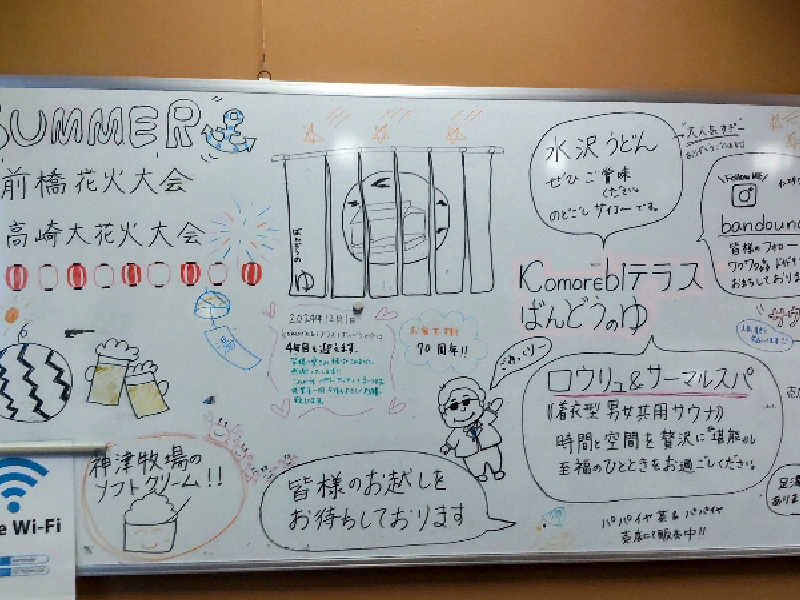 SUMMER
前橋花火大会
高崎大花火大会
神津牧場の
ソフトクリーム!!
e Wi-Fi
ゆ
2024年12月1日
4年目に迎えます。
70周年!!
皆様のお越しを
お待ちしております
水沢うどん
ぜひご賞味
ください
のどごしサイコーです。
Komorebiテラス
ばんどうのゆ
ロウリュ&サーマルスパ
(着衣型 男女共用サウナ)
時間と空間を贅沢に堪能し
至福のひとときをお過ごしください。
パパイヤ茶&パパイヤ
売店にて販売中!!
Follow ME
bandound
皆様のフォロー